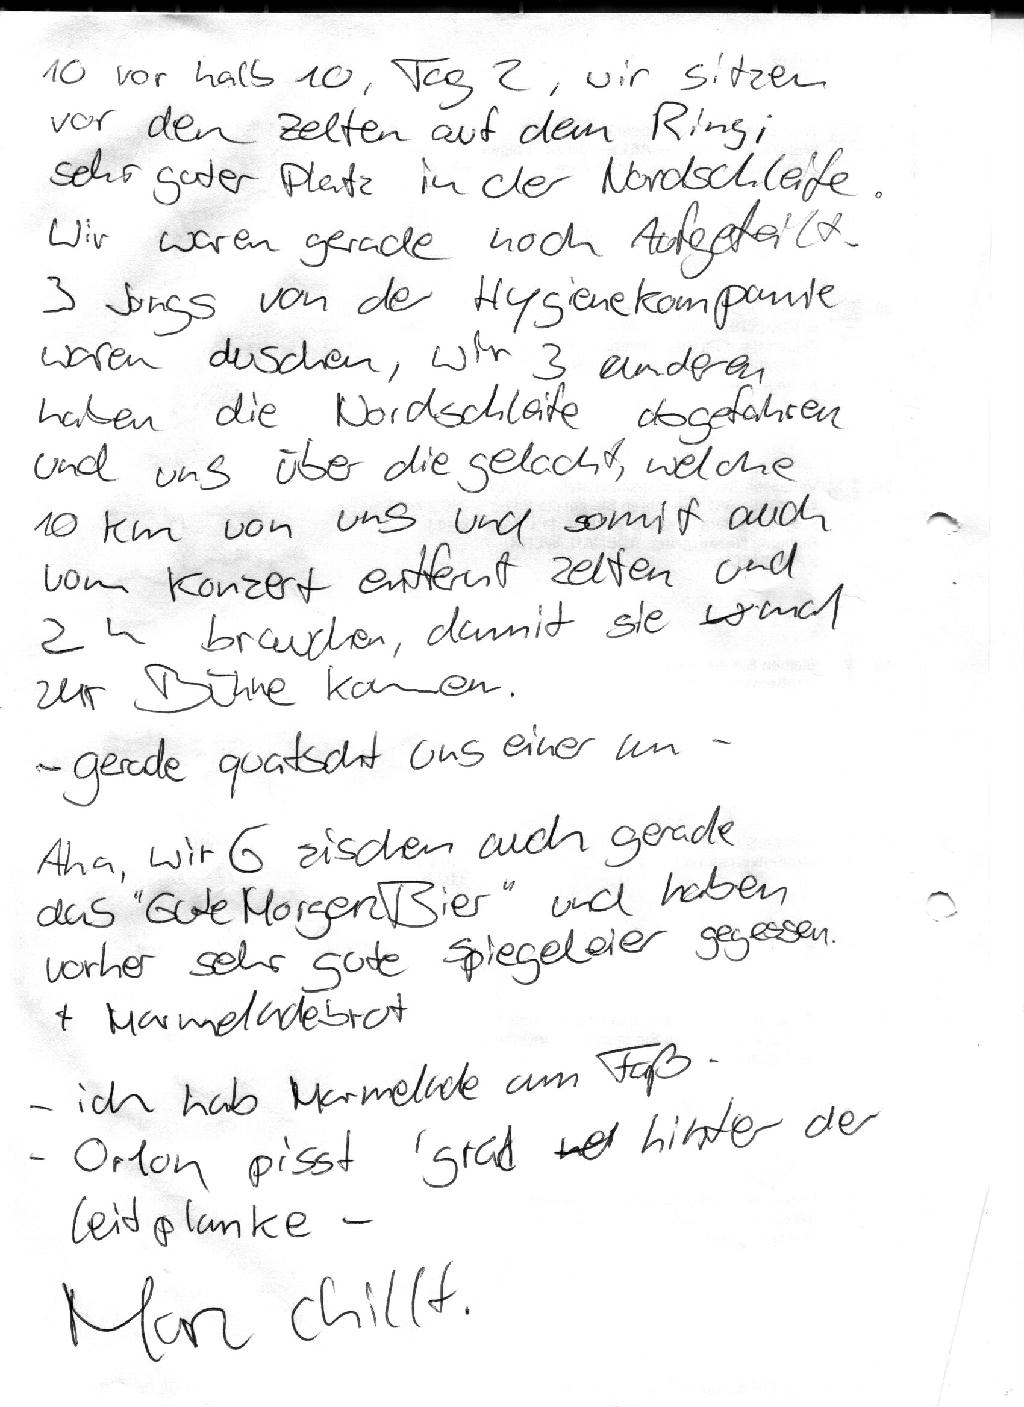 10 vor halb 10, Tag 2, wir sitzen
vor den Zelten auf dem Ring;
sehr guter Platz in der Nordschleife.
Wir waren gerade noch Aufgeteilt.
3 Jungs von der Hygienekompanie
waren duschen, wir 3 anderen
haben die Nordschleife abgefahren
und uns über die gelacht, welche
10 km von uns und somit auch
vom Konzert entfernt zelten und
2 h brauchen, damit sie mal
zur Bühne kommen.
- gerade quatscht uns einer an -
Aha, wir 6 zischen auch gerade
das "Gute Morgen Bier" und haben
vorher sehr gute Spiegeleier gegessen.
+ Marmeladebrot
- ich hab Marmelade am Faß -
- Orlon pisst 'grad hinter der
Leitplanke -
Man chillt.